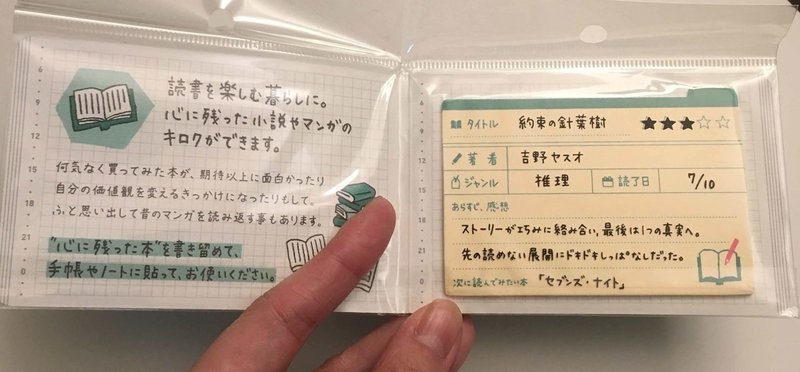 読書を楽しむ暮らしに。
心に残った小説やマンガの
キロクができます。
何気なく買ってみた本が、期待以上に面白かったり
自分の価値観を変えるきっかけになったりもして。
ふと思い出して昔のマンガを読み返す事もあります。
"心に残った本"を書き留めて、
手帳やノートに貼って、お使いください。
6
9
12
15
18
21
0
タイトル 約束の針葉樹 ★★★☆☆
著者 吉野ヤスオ
ジャンル 推理 読了日 7/10
あらすじ、感想
ストーリーが巧みに絡み合い、最後は1つの真実へ。
先の読めない展開にドキドキしっぱなしだった。
次に読んでみたい本 「セブンズ・ナイト」
6
9
12
15
18
21
0